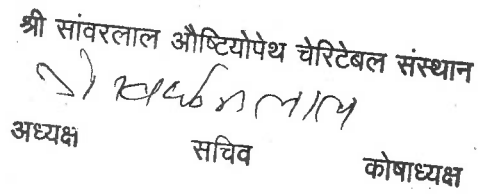 श्री सांवरलाल औष्टियोपेथ चेरिटेबल संस्थान
अध्यक्ष सचिव कोषाध्यक्ष